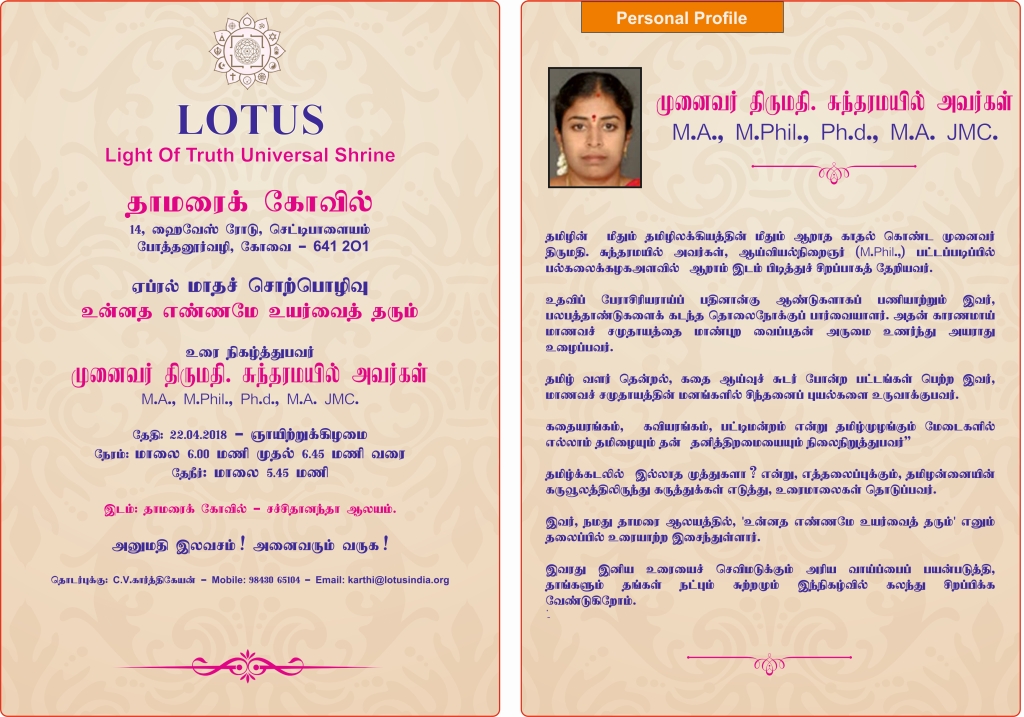 LOTUS
Light Of Truth Universal Shrine
தாமரைக் கோவில்
14, ஹைவேஸ் ரோடு, செட்டிபாளையம்
போத்தனூர்வழி, கோவை - 641 201
ஏப்ரல் மாதச் சொற்பொழிவு
உன்னத எண்ணமே உயர்வைத் தரும்
உரை நிகழ்த்துபவர்
முனைவர் திருமதி. சுந்தரமயில் அவர்கள்
M.A., M.Phil., Ph.d., M.A. JMC.
தேதி: 22.04.2018 - ஞாயிற்றுக்கிழமை
நேரம்: மாலை 6.00 மணி முதல் 6.45 மணி வரை
தேநீர்: மாலை 5.45 மணி
இடம்: தாமரைக் கோவில் - சச்சிதானந்தா ஆலயம்.
அனுமதி இலவசம் ! அனைவரும் வருக !
தொடர்புக்கு: C.V.கார்த்திகேயன் - Mobile: 98430 65104 - Email: karthi@lotusindia.org
Personal Profile
முனைவர் திருமதி. சுந்தரமயில் அவர்கள்
M.A., M.Phil., Ph.d., M.A. JMC.
தமிழின் மீதும் தமிழிலக்கியத்தின் மீதும் ஆறாத காதல் கொண்ட முனைவர்
திருமதி. சுந்தரமயில் அவர்கள், ஆய்வியல்நிறைஞர் (M.Phil.,) பட்டப்படிப்பில்
பல்கலைக்கழகஅளவில் ஆறாம் இடம் பிடித்துச் சிறப்பாகத் தேறியவர்.
உதவிப் பேராசிரியராய்ப் பதினான்கு ஆண்டுகளாகப் பணியாற்றும் இவர்,
பலபத்தாண்டுகளைக் கடந்த தொலைநோக்குப் பார்வையாளர். அதன் காரணமாய்
மாணவச் சமுதாயத்தை மாண்புற வைப்பதன் அருமை உணர்ந்து அயராது
உழைப்பவர்.
தமிழ் வளர் தென்றல், கதை ஆய்வுச் சுடர் போன்ற பட்டங்கள் பெற்ற இவர்,
மாணவச் சமுதாயத்தின் மனங்களில் சிந்தனைப் புயல்களை உருவாக்குபவர்.
கதையரங்கம், கவியரங்கம், பட்டிமன்றம் என்று தமிழ்முழங்கும் மேடைகளில்
எல்லாம் தமிழையும் தன் தனித்திறமையையும் நிலைநிறுத்துபவர்”
தமிழ்க்கடலில் இல்லாத முத்துகளா ? என்று, எத்தலைப்புக்கும், தமிழன்னையின்
கருவூலத்திலிருந்து கருத்துக்கள் எடுத்து, உரைமாலைகள் தொடுப்பவர்.
இவர், நமது தாமரை ஆலயத்தில், 'உன்னத எண்ணமே உயர்வைத் தரும்' எனும்
தலைப்பில் உரையாற்ற இசைந்துள்ளார்.
இவரது இனிய உரையைச் செவிமடுக்கும் அரிய வாய்ப்பைப் பயன்படுத்தி,
தாங்களும் தங்கள் நட்பும் சுற்றமும் இந்நிகழ்வில் கலந்து சிறப்பிக்க
வேண்டுகிறோம்.